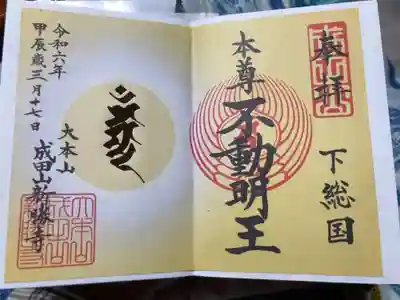 奉拝
下総国
本尊
不動明王
令和六年
甲辰歳三月十七日
大本山
成田山新勝寺